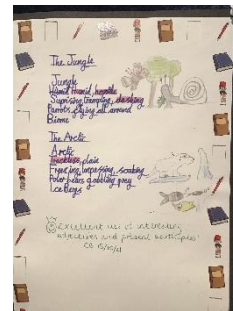 The Jungle
Jungle
Humid, horrible
Surprising, tramping, dashing
Parrots flying all around
Biome
The Arctic
Arctic
Treeless, plain
Freezing, impressing, soaking
Polar bears gobbling prey
Ice Bergs
Excellent use of interesting
adjectives and present participles